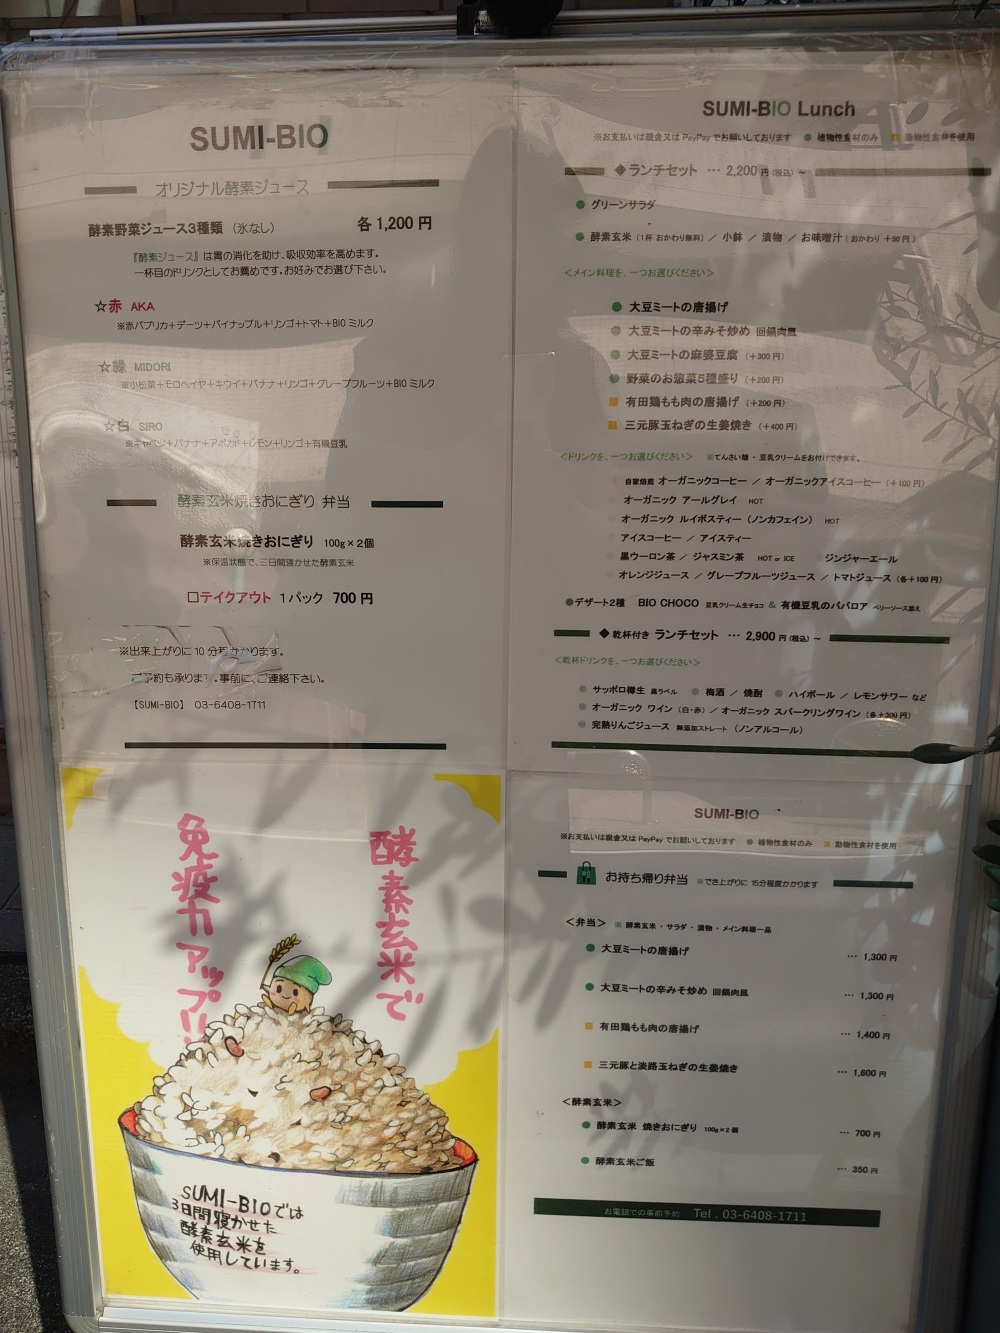 SUMI-BIO
オリジナル酵素ジュース
酵素野菜ジュース3種類 (氷なし) 各 1,200 円
『酵素ジュース』は胃の消化を助け、吸収効率を高めます。
一杯目のドリンクとしてお薦めです。お好みでお選び下さい。
☆赤 AKA
※赤パプリカ+デーツ+パイナップル+リンゴ+トマト+BIO ミルク
☆緑 MIDORI
※小松菜+モロヘイヤ+キウイ+バナナ+リンゴ+グレープフルーツ+BIO ミルク
☆白 SIRO
※キャベツ+バナナ+アボカド+レモン+リンゴ+有機豆乳
酵素玄米焼きおにぎり 弁当
酵素玄米焼きおにぎり 100g×2個
※保温状態で、三日間寝かせた酵素玄米
□テイクアウト 1パック 700 円
※出来上がりに 10 分程かかります。
ご予約も承ります。事前に、ご連絡下さい。
【SUMI-BIO】 03-6408-1711
SUMI-BIO Lunch
※お支払いは現金又は PayPay でお願いしております ● 植物性食材のみ ■ 動物性食材を使用
◆ランチセット … 2,200 円(税込) ~
● グリーンサラダ
● 酵素玄米 (1杯 おかわり無料) / 小鉢 / 漬物 / お味噌汁 (おかわり +50 円)
<メイン料理を、一つお選びください>
● 大豆ミートの唐揚げ
● 大豆ミートの辛みそ炒め 回鍋肉風
● 大豆ミートの麻婆豆腐 (+300 円)
● 野菜のお惣菜5種盛り (+200 円)
■ 有田鶏もも肉の唐揚げ (+200 円)
■ 三元豚玉ねぎの生姜焼き (+400 円)
<ドリンクを、一つお選びください> ※てんさい糖・豆乳クリームをお付けできます。
自家焙煎 オーガニックコーヒー / オーガニックアイスコーヒー (+100 円)
オーガニック アールグレイ HOT
オーガニック ルイボスティー (ノンカフェイン) HOT
アイスコーヒー / アイスティー
黒ウーロン茶 / ジャスミン茶 HOT or ICE ジンジャーエール
オレンジジュース / グレープフルーツジュース / トマトジュース (各+100 円)
●デザート2種 BIO CHOCO 豆乳クリーム生チョコ & 有機豆乳のババロア ベリーソース添え
◆ 乾杯付き ランチセット … 2,900 円(税込) ~
<乾杯ドリンクを、一つお選びください>
● サッポロ樽生 黒ラベル ● 梅酒 / 焼酎 ● ハイボール / レモンサワー など
● オーガニック ワイン (白・赤) / オーガニック スパークリングワイン (各+300 円)
● 完熟りんごジュース 無添加ストレート (ノンアルコール)
酵素玄米で
免疫力アップ!!
SUMI-BIOでは
3日間寝かせた
酵素玄米を
使用しています。
SUMI-BIO
※お支払いは現金又は PayPay でお願いしております ● 植物性食材のみ ■ 動物性食材を使用
お持ち帰り弁当 ※でき上がりに 15分程度かかります
<弁当> ※ 酵素玄米・サラダ・漬物・メイン料理一品
● 大豆ミートの唐揚げ … 1,300 円
● 大豆ミートの辛みそ炒め 回鍋肉風 … 1,300 円
■ 有田鶏もも肉の唐揚げ … 1,400 円
■ 三元豚と淡路玉ねぎの生姜焼き … 1,600 円
<酵素玄米>
● 酵素玄米 焼きおにぎり 100g×2個 … 700 円
● 酵素玄米ご飯 … 350 円
お電話での事前予約 Tel . 03-6408-1711